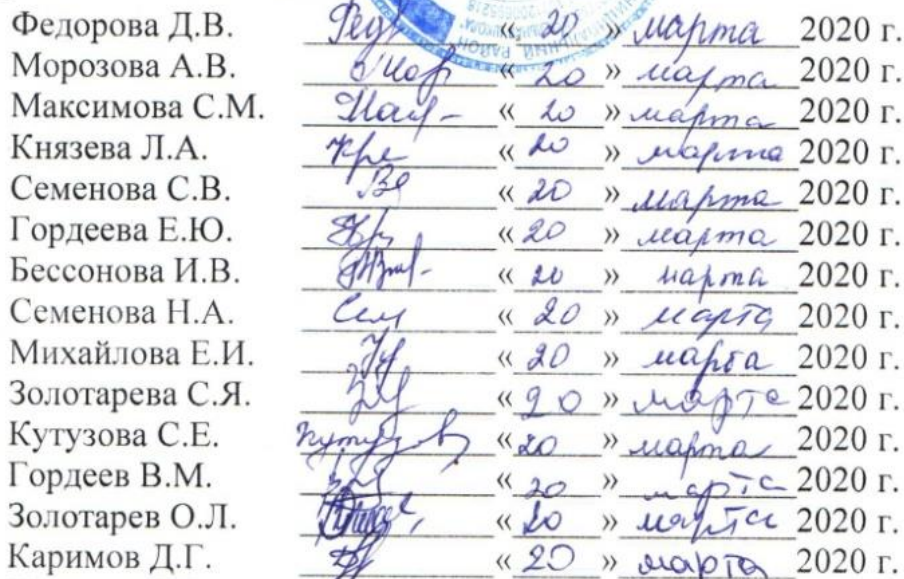 Федорова Д.В. « 20 » марта 2020 г.
Морозова А.В. « 20 » марта 2020 г.
Максимова С.М. « 20 » марта 2020 г.
Князева Л.А. « 20 » марта 2020 г.
Семенова С.В. « 20 » марта 2020 г.
Гордеева Е.Ю. « 20 » марта 2020 г.
Бессонова И.В. « 20 » марта 2020 г.
Семенова Н.А. Сем « 20 » марта 2020 г.
Михайлова Е.И. « 20 » марта 2020 г.
Золотарева С.Я. « 20 » марта 2020 г.
Кутузова С.Е. « 20 » марта 2020 г.
Гордеев В.М. « 20 » марта 2020 г.
Золотарев О.Л. « 20 » марта 2020 г.
Каримов Д.Г. « 20 » марта 2020 г.